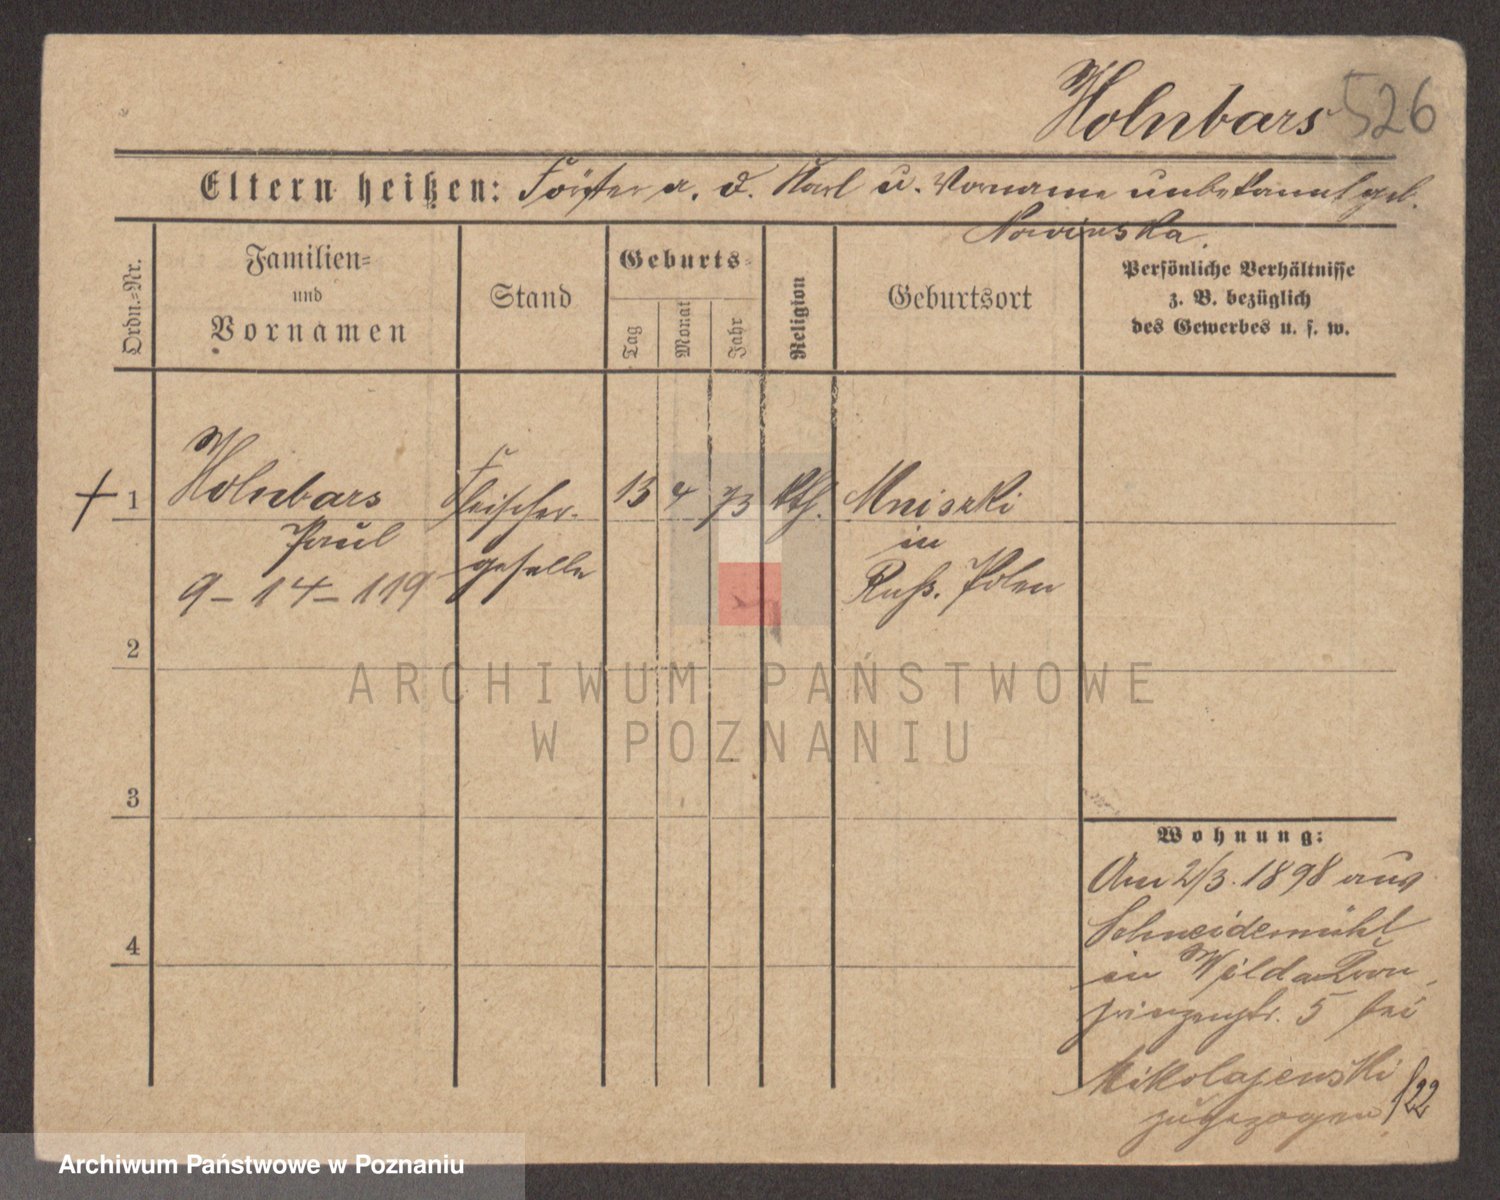 Holnbars 526
Eltern heißen: Förster a. D. Karl u. Vorname unbekannt geb.
Nowinska.
Ordn.-Nr.
Familien-
und
Vornamen
Stand
Geburts-
Tag
Monat
Jahr
Religion
Geburtsort
Persönliche Verhältnisse
z. B. bezüglich
des Gewerbes u. s. w.
1 Holnbars Fleischer- 13 4 73 kth. Mniszki
Paul geselle in
9-14-119 Russ. Polen
2
3
4
Wohnung:
Am 2/3. 1898 aus
Schneidemühl
in Wilda Kron
prinzenstr. 5 bei
Mikolajewski
zugezogen 22
ARCHIWUM PAŃSTWOWE
W POZNANIU
Archiwum Państwowe w Poznaniu